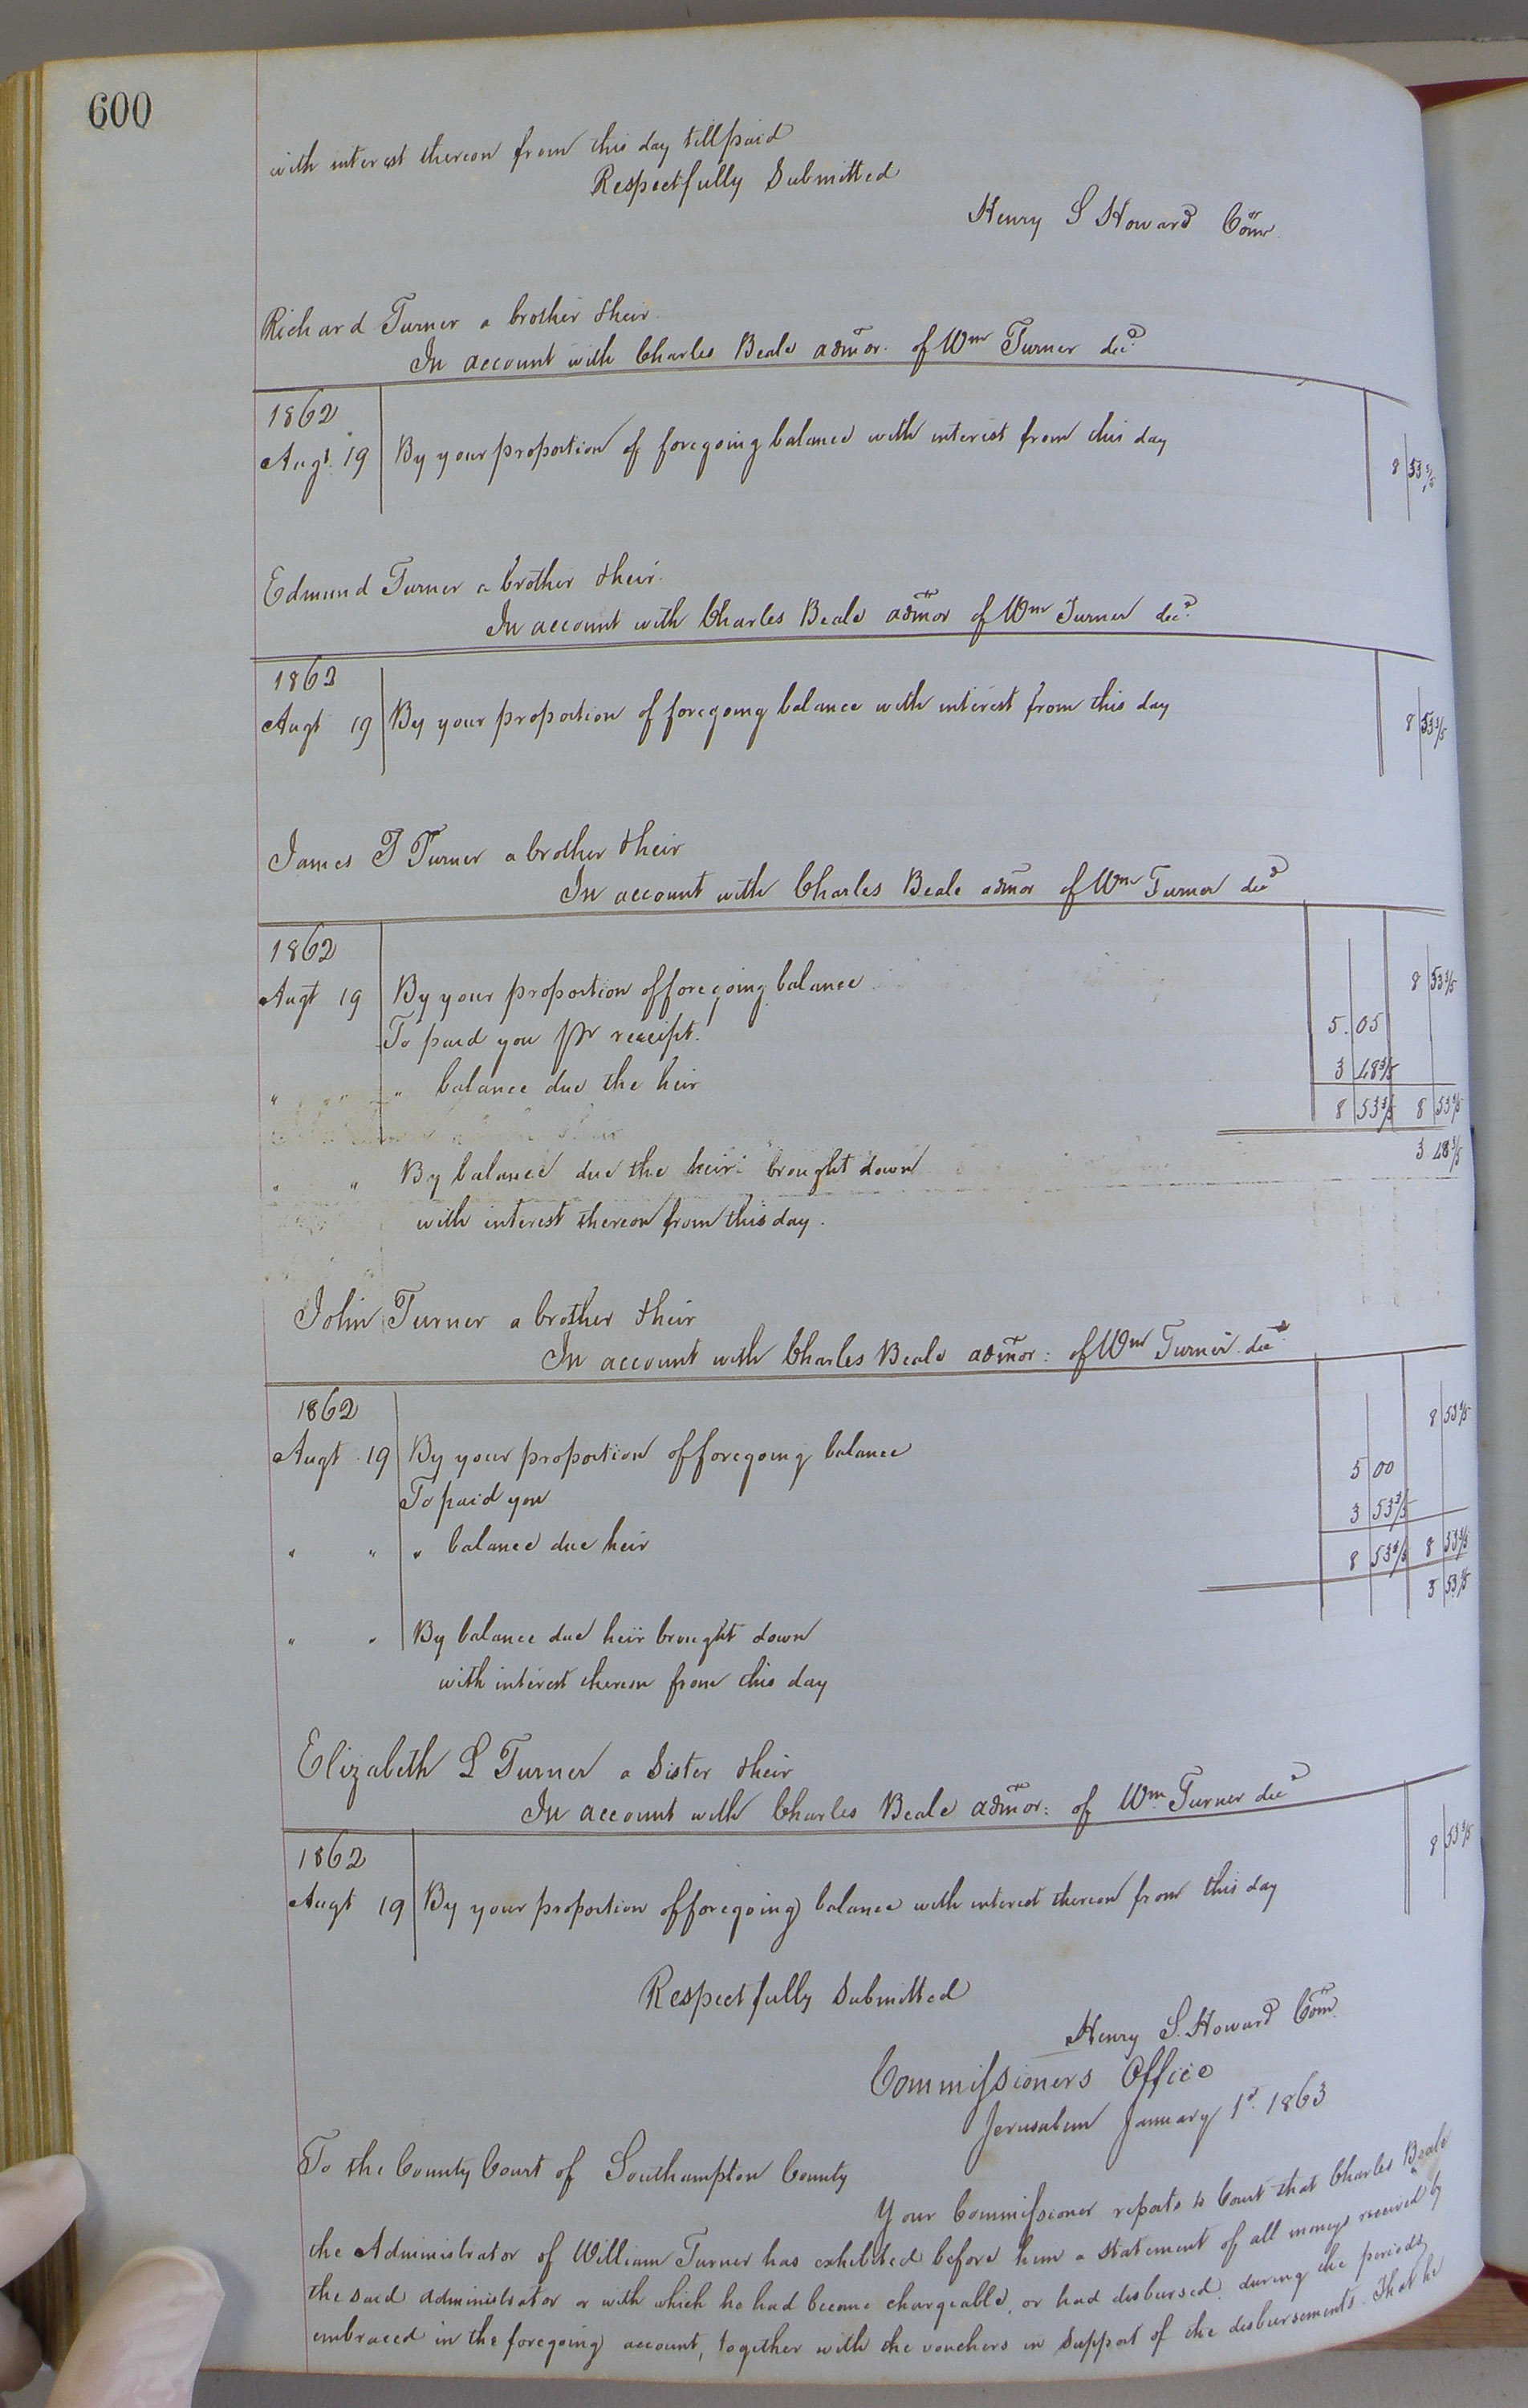 600
with interest thereon from this day till paid
Respectfully Submitted
Henry S Howard Comr
Richard Turner a brother & heir
In account with Charles Beale admor. of Wm Turner decd
1862
Augt 19 By your proportion of foregoing balance with interest from this day 8 53 3/5
Edmund Turner a brother & heir.
In account with Charles Beale admor of Wm Turner decd
1862
Augt 19 By your proportion of foregoing balance with interest from this day 8 53 3/5
James T Turner a brother & heir
In account with Charles Beale admor of Wm Turner decd
1862
Augt 19 By your proportion of foregoing balance 8 53 3/5
To paid you pr receipt. 5.05
" " " balance due the heir 3 48 3/5
8 53 3/5 8 53 3/5
" " By balance due the heir brought down 3 48 3/5
with interest thereon from this day.
John Turner a brother & heir
In account with Charles Beale admor: of Wm Turner decd
1862
Augt 19 By your proportion of foregoing balance 8 53 3/5
To paid you 5 00
" " " balance due heir 3 53 3/5
8 53 3/5 8 53 3/5
" " By balance due heir brought down 3 53 3/5
with interest thereon from this day
Elizabeth L Turner a Sister & heir
In account with Charles Beale admor: of Wm Turner decd
1862
Augt 19 By your proportion of foregoing balance with interest thereon from this day 8 53 3/5
Respectfully Submitted
Henry S. Howard Comr
Commissioners Office
Jerusalem January 1st. 1863
To the County Court of Southampton County
Your Commissioner reports to Court that Charles Beale
the Administrator of William Turner has exhibited before him a statement of all moneys received by
the said administrator or with which he had become chargeable, or had disbursed during the periods
embraced in the foregoing account, together with the vouchers in support of the disbursements. That he